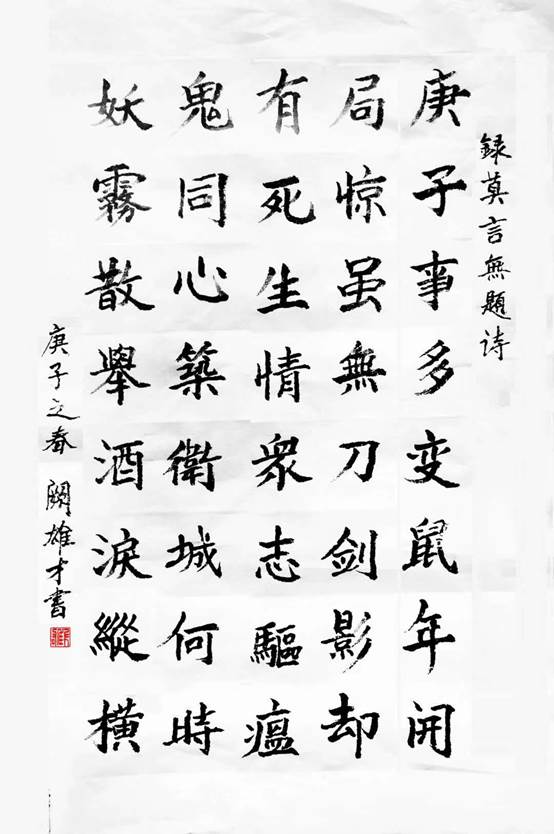 録莫言無題诗
庚子事多变鼠年開
局惊虽無刀剑影却
有死生情衆志驅瘟
鬼同心築衛城何時
妖霧散舉酒淚縱横
庚子之春 闕雄才書